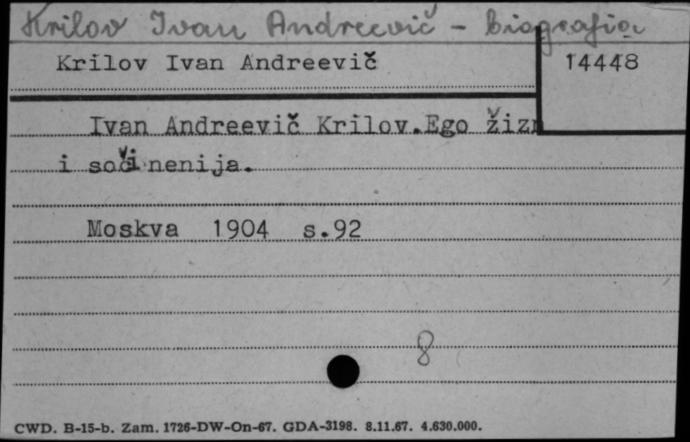 Krilov Ivan Andreevič - biografia
Krilov Ivan Andreevič
14448
Ivan Andreevič Krilov.Ego žizn
i sočinenija.
Moskva 1904 s.92
8
CWD. B-15-b. Zam. 1726-DW-On-67. GDA-3198. 8.11.67. 4.630.000.